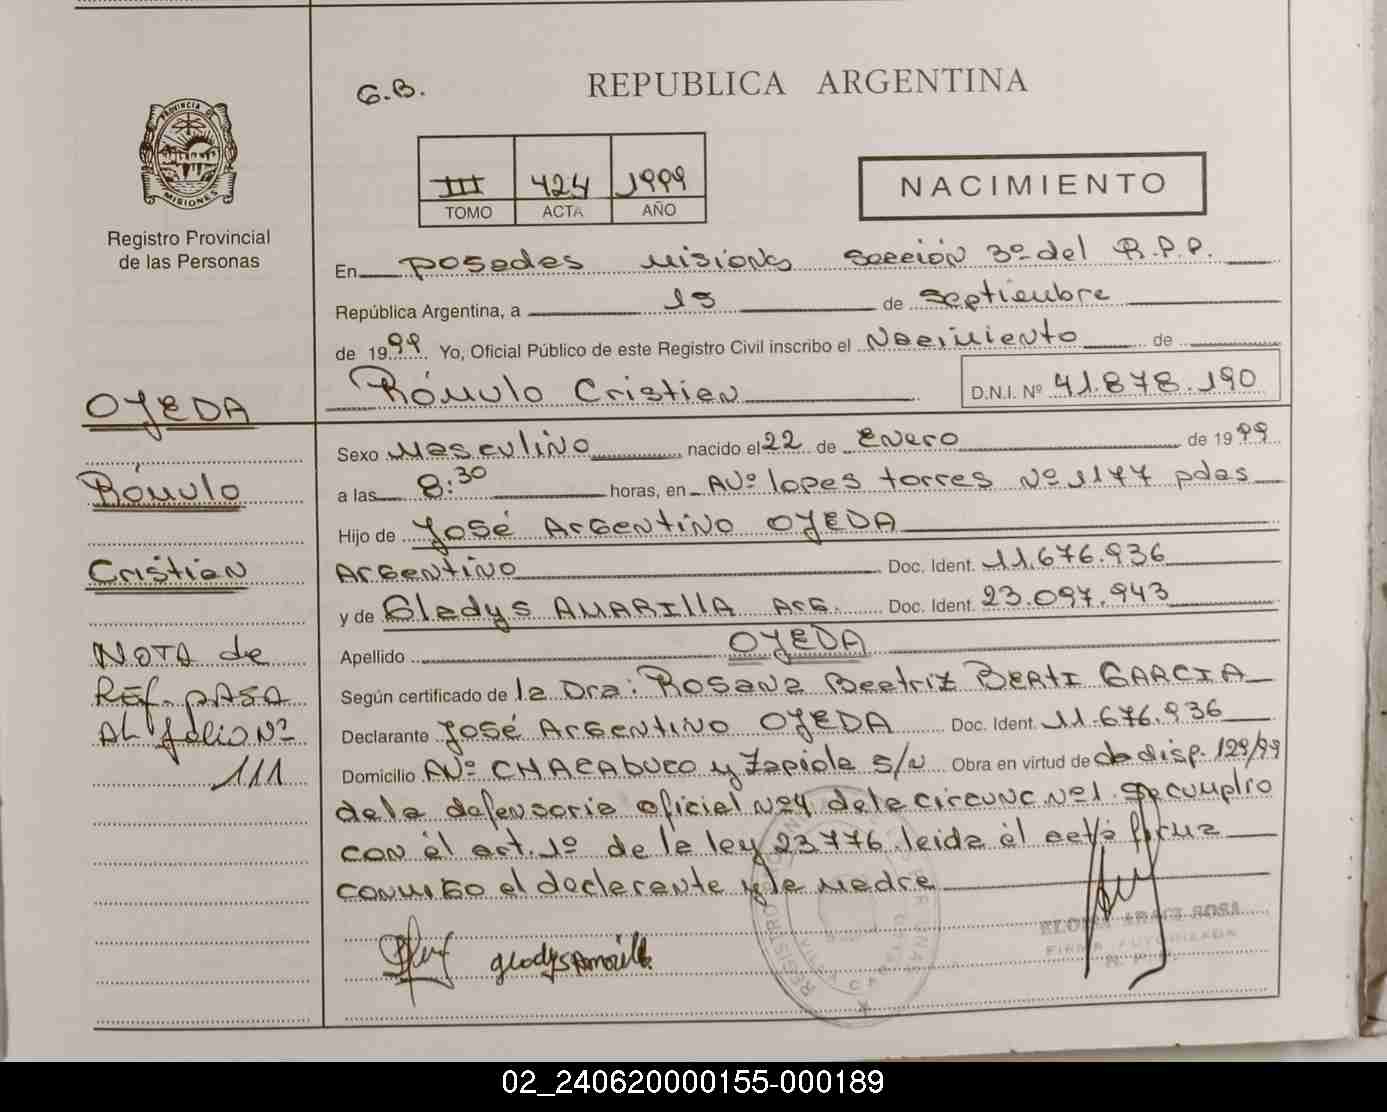 G.B.
REPUBLICA ARGENTINA
PROVINCIA DE
MISIONES
III 424 1999
TOMO ACTA AÑO
NACIMIENTO
Registro Provincial
de las Personas
En posadas Misiones Sección 3º del R.P.P.
República Argentina, a 15 de septiembre
de 1999 Yo, Oficial Público de este Registro Civil inscribo el Nacimiento de
Rómulo Cristian D.N.I. Nº 41.878.190
OJEDA
Rómulo
Cristian
NOTA de
REF. pASA
AL folio Nº
111
Sexo Masculino nacido el 22 de Enero de 1999
a las 8:30 horas, en AVº lopes torres Nº 1177 pdas
Hijo de José Argentino OJEDA
Argentino Doc. Ident. 11.676.936
y de Gladys AMARIllA ArG. Doc. Ident. 23.097.943
Apellido OJEDA
Según certificado de la Dra: Rosana Beatriz BERTI GARCIA
Declarante José Argentino OJEDA Doc. Ident. 11.676.936
Domicilio AVº CHACAbuco y Zapiola S/N Obra en virtud de la disp. 129/99
de la defensoria oficial Nº4 de la circunc. Nº1. Se cumplio
con el art. 1º de la ley 23.776. leida el acta firma
conmigo el declarante y la madre
gladys Amarilla
FIRMA AUTORIZADA
02_240620000155-000189